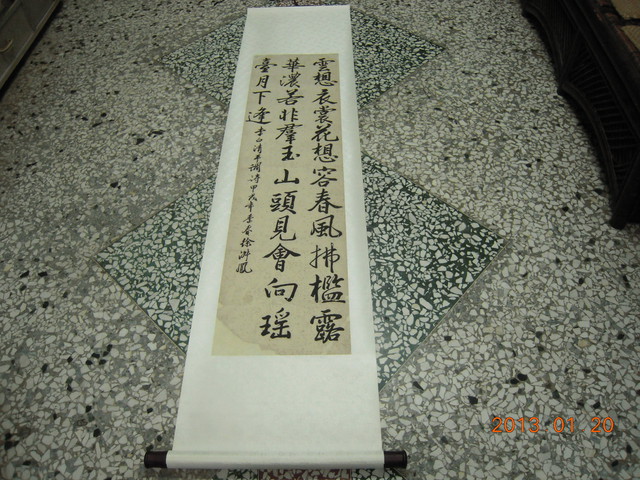 雲想衣裳花想容春風拂檻露
華濃若非羣玉山頭見會向瑶
臺月下逢
李白清平調詩甲戌年季春徐
2013.01.20